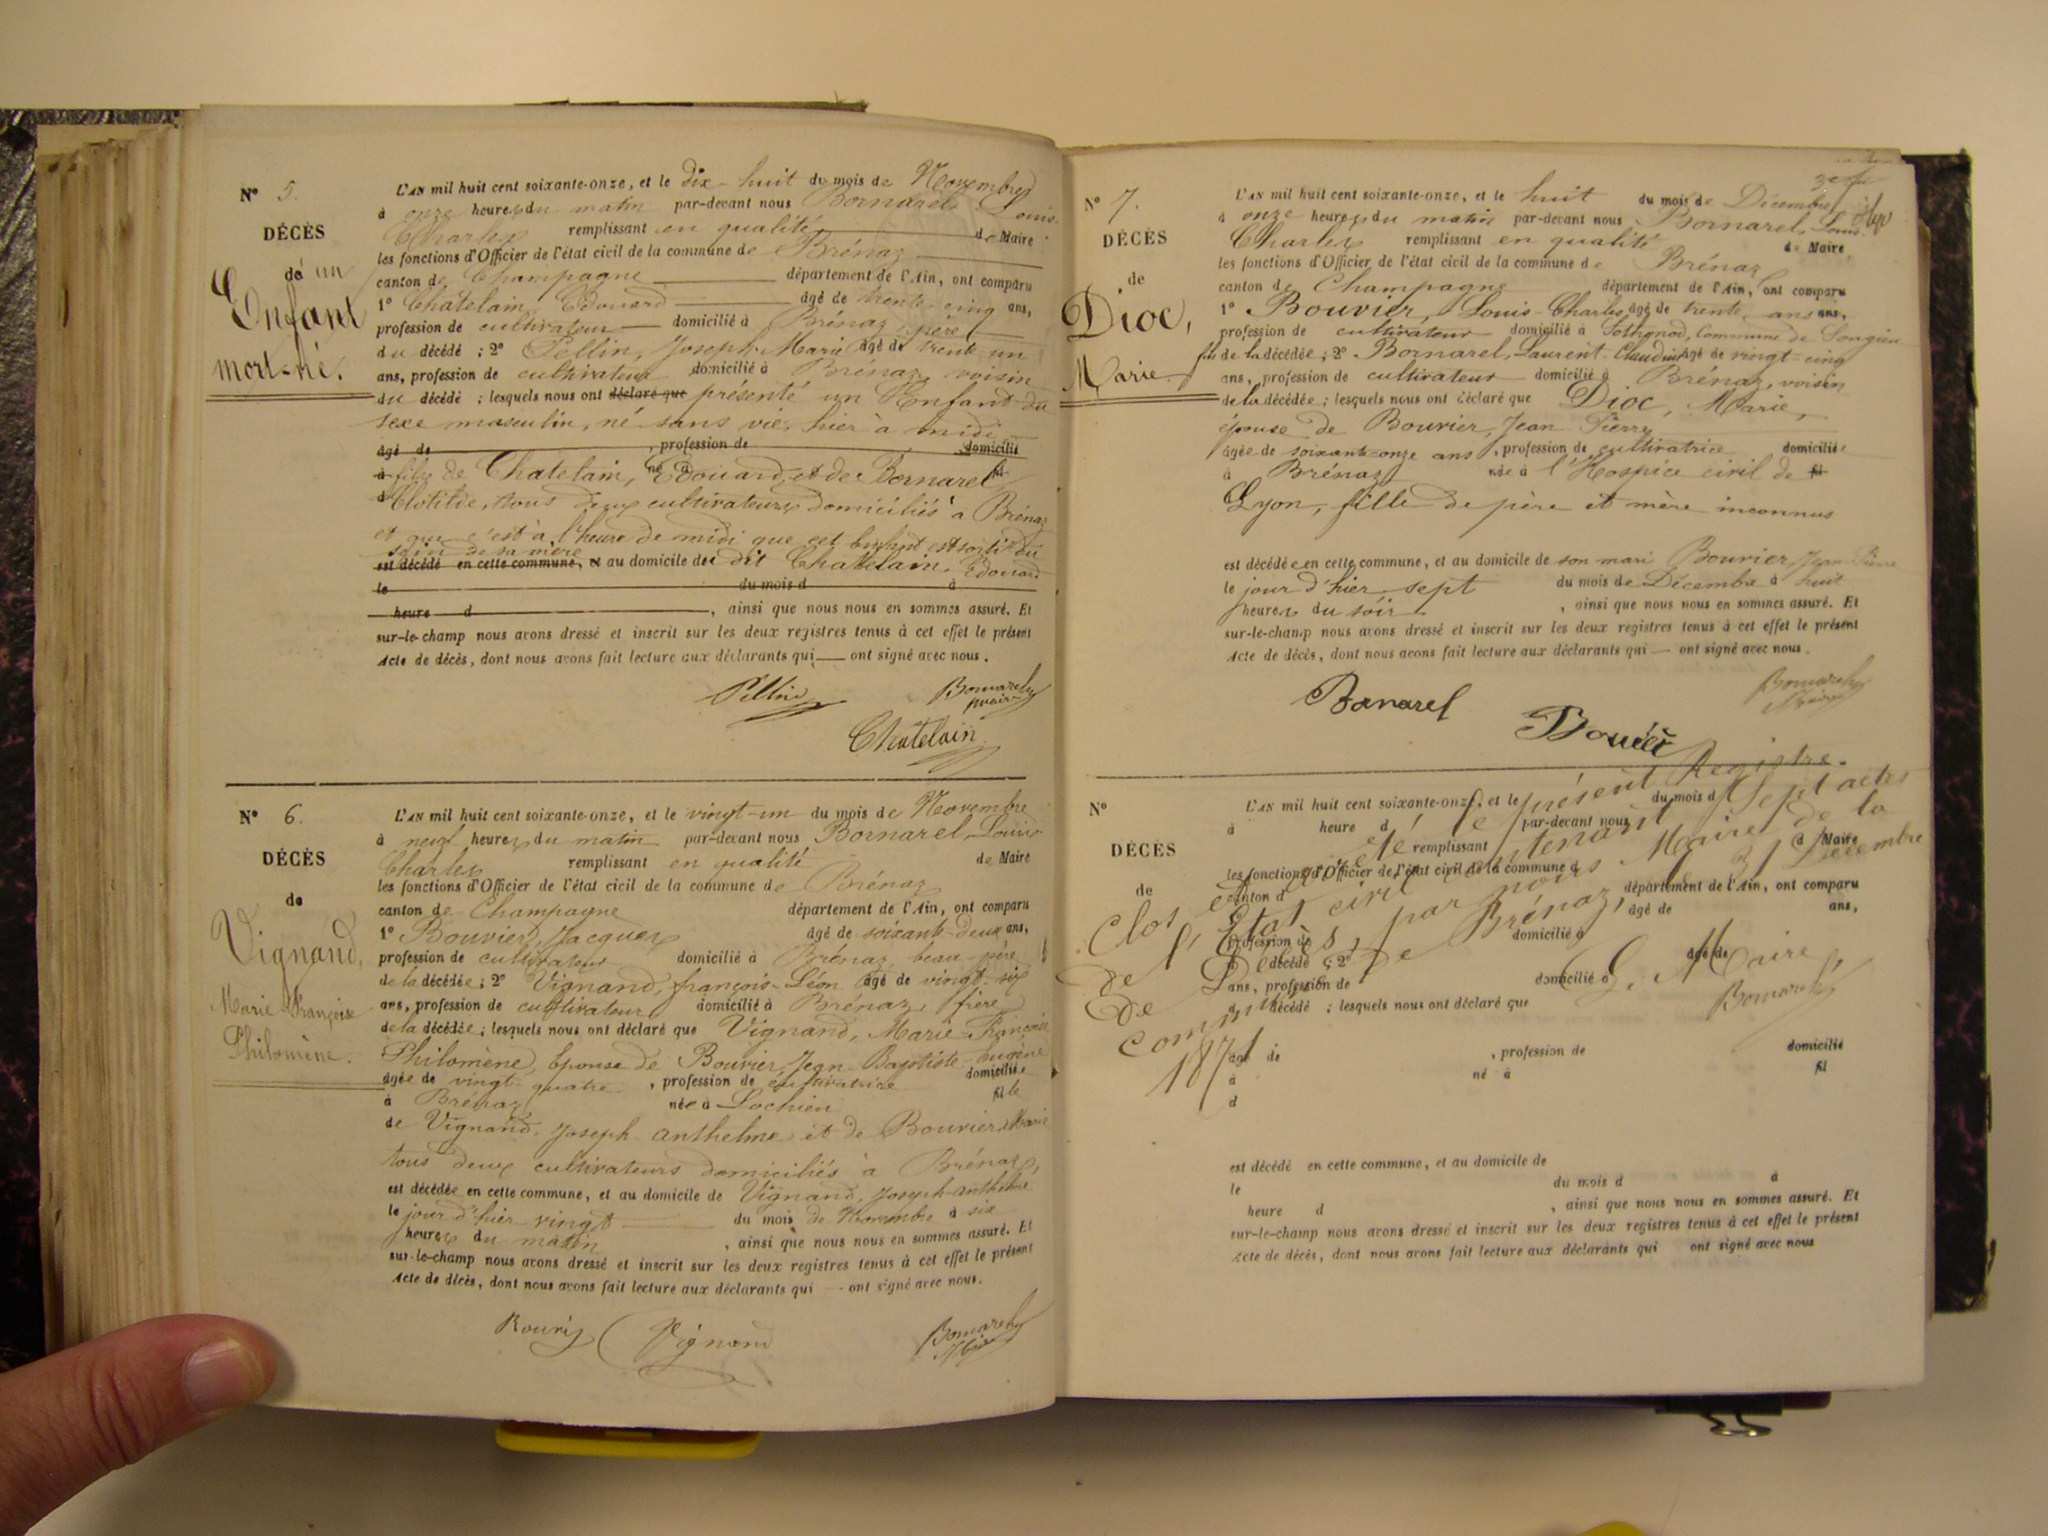 N° 5.
DÉCÈS
de un
Enfant
mort-né.
L'AN mil huit cent soixante-onze, et le dix-huit du mois de Novembre
à onze heures du matin par-devant nous Bornarel, Louis
Charles remplissant en qualité de Maire
les fonctions d'Officier de l'état civil de la commune de Brénaz
canton de Champagne département de l'Ain, ont comparu
1° Châtelain, Edouard âgé de trente-cinq ans,
profession de cultivateur domicilié à Brénaz, père
du décédé ; 2° Pellin, Joseph-Marie âgé de trente-un
ans, profession de cultivateur domicilié à Brénaz, voisin
du décédé ; lesquels nous ont déclaré que présenté un Enfant du
sexe masculin, né sans vie, hier à midi
âgé de , profession de domicilié
à fils de Chatelain, né à Edouard et de Bornarel fil
d Clotilde, tous deux cultivateurs domiciliés à Brénaz
et que c'est à l'heure de midi que cet Enfant est sorti du
sein de sa mère
est décédé en cette commune, et au domicile de dit Chatelain, Edouard
le du mois d à
heure d , ainsi que nous nous en sommes assuré. Et
sur-le-champ nous avons dressé et inscrit sur les deux registres tenus à cet effet le présent
Acte de décès, dont nous avons fait lecture aux déclarants qui ont signé avec nous.
Pellin Bornarel
maire
Chatelain
N° 6.
DÉCÈS
de
Vignand,
Marie Françoise
Philomène.
L'AN mil huit cent soixante-onze, et le vingt-un du mois de Novembre
à neuf heures du matin par-devant nous Bornarel, Louis
Charles remplissant en qualité de Maire
les fonctions d'Officier de l'état civil de la commune de Brénaz
canton de Champagne département de l'Ain, ont comparu
1° Bouvier, Jacques âgé de soixante-deux ans,
profession de cultivateur domicilié à Brénaz, beau-père
de la décédée ; 2° Vignand, françois-Léon âgé de vingt-six
ans, profession de cultivateur domicilié à Brénaz, frère
de la décédée ; lesquels nous ont déclaré que Vignand, Marie-Françoise
Philomène, Epouse de Bouvier, Jean-Baptiste-Eugène
âgée de vingt-quatre , profession de cultivatrice domiciliée
à Brénaz née à Lochieu fille
de Vignand, Joseph-anthelme et de Bouvier, Marie
tous deux cultivateurs domiciliés à Brénaz,
est décédée en cette commune, et au domicile de Vignand, Joseph-anthelme
le jour d'hier vingt du mois de Novembre à six
heures du matin , ainsi que nous nous en sommes assuré. Et
sur-le-champ nous avons dressé et inscrit sur les deux registres tenus à cet effet le présent
Acte de décès, dont nous avons fait lecture aux déclarants qui ont signé avec nous.
Vignand Bornarel
Maire
N° 7.
DÉCÈS
de
Dioc,
Marie.
L'AN mil huit cent soixante-onze, et le huit du mois de Décembre
à onze heures du matin par-devant nous Bornarel, Louis
Charles remplissant en qualité de Maire
les fonctions d'Officier de l'état civil de la commune de Brénaz
canton de Champagne département de l'Ain, ont comparu
1° Bouvier, Louis-Charles âgé de trente ans ans,
profession de cultivateur domicilié à Sothonod, Commune de Songieu
fils de la décédée ; 2° Bornarel, Laurent-Claudius âgé de vingt-cinq
ans, profession de cultivateur domicilié à Brénaz, voisin
de la décédée ; lesquels nous ont déclaré que Dioc, Marie,
épouse de Bouvier, Jean Pierre
âgée de soixante-onze ans , profession de cultivatrice domiciliée
à Brénaz née à l'Hospice civil de fil
Lyon, fille de père et mère inconnus
est décédée en cette commune, et au domicile de son mari Bouvier, Jean-Pierre
le jour d'hier sept du mois de Décembre à huit
heures du soir , ainsi que nous nous en sommes assuré. Et
sur-le-champ nous avons dressé et inscrit sur les deux registres tenus à cet effet le présent
Acte de décès, dont nous avons fait lecture aux déclarants qui ont signé avec nous.
Bornarel Bornarel
Maire
N°
DÉCÈS
de
L'AN mil huit cent soixante-onze, et le du mois d
à heure d par-devant nous
remplissant d Maire
les fonctions d'Officier de l'état civil de la commune d
canton d département de l'Ain, ont comparu
âgé de ans,
profession de domicilié à
d décédé ; 2° âgé de
ans, profession de domicilié à
d décédé ; lesquels nous ont déclaré que
âgé de , profession de domicilié
à né à fil
d
est décédé en cette commune, et au domicile de
le du mois d à
heure d , ainsi que nous nous en sommes assuré. Et
sur-le-champ nous avons dressé et inscrit sur les deux registres tenus à cet effet le présent
Acte de décès, dont nous avons fait lecture aux déclarants qui ont signé avec nous
Clos et arrêté le présent Registre
de l'Etat civil contenant Sept actes
de Décès, par nous Maire de la
commune de Brénaz, le 31 Décembre
1871.
Le Maire,
Bornarel